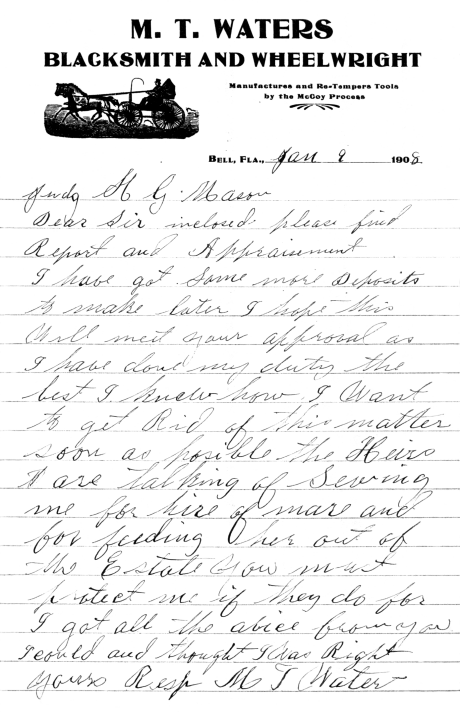 M. T. WATERS
BLACKSMITH AND WHEELWRIGHT
Manufactures and Re-Tempers Tools
by the McCoy Process
BELL, FLA., Jan 9 1908
Judg H G. Mason
Dear Sir inclosed please find
Report and Appraisement
I have got Some more Deposits
to make later I hope this
Will meet your approval as
I have done my duty the
best I knew how. I Want
to get Rid of this matter
soon as posible the Heirs
are talking of Sewing
me for hire of mare and
for feeding her out of
the Estate you must
protect me if they do for
I got all the abice from you
I could and thought I Was Right
yours Resp M T Water